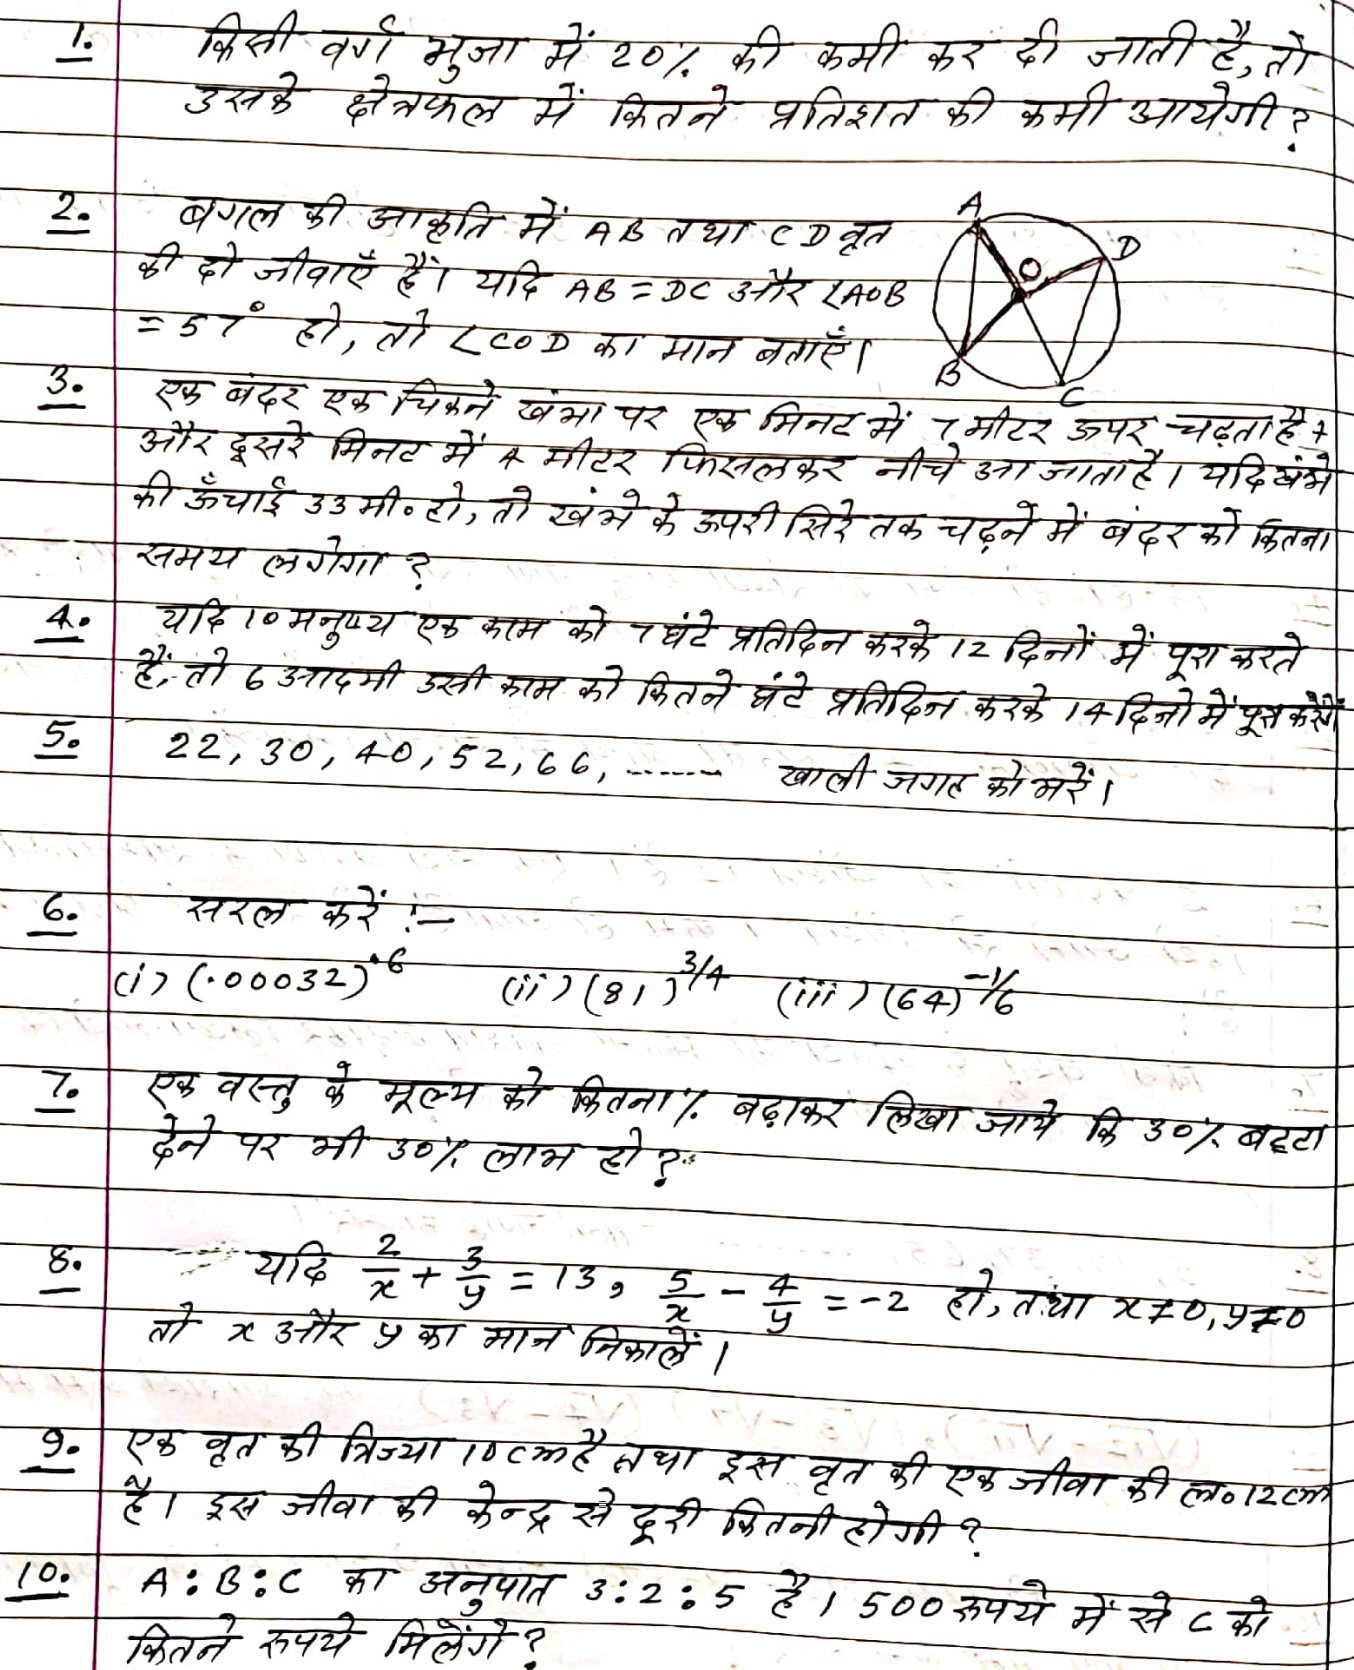 1. किसी वर्ग भुजा में 20% की कमी कर दी जाती है, तो
उसके क्षेत्रफल में कितने प्रतिशत की कमी आयेगी?
2. बगल की आकृति में AB तथा CD वृत
की दो जीवाएँ हैं। यदि AB = DC और ∠AOB
= 57° हो, तो ∠COD का मान बताएँ।
A
D
O
B
C
3. एक बंदर एक चिकने खंभा पर एक मिनट में 7 मीटर ऊपर चढ़ता है
और दूसरे मिनट में 4 मीटर फिसलकर नीचे आ जाता है। यदि खंभे
की ऊँचाई 33 मी॰ हो, तो खंभे के ऊपरी सिरे तक चढ़ने में बंदर को कितना
समय लगेगा?
4. यदि 10 मनुष्य एक काम को 7 घंटे प्रतिदिन करके 12 दिनों में पूरा करते
हैं, तो 6 आदमी उसी काम को कितने घंटे प्रतिदिन करके 14 दिनो में पूरा करेगें
5. 22, 30, 40, 52, 66, ....... खाली जगह को भरें।
6. सरल करें :-
(i) (.00032)^.6 (ii) (81)^3/4 (iii) (64)^-1/6
7. एक वस्तु के मूल्य को कितना % बढ़ाकर लिखा जाये कि 30% बट्टा
देने पर भी 30% लाभ हो?
8. यदि 2/x + 3/y = 13, 5/x - 4/y = -2 हो, तथा x≠0, y≠0
तो x और y का मान निकालें।
9. एक वृत की त्रिज्या 10 cm है तथा इस वृत की एक जीवा की ल॰ 12 cm
है। इस जीवा की केन्द्र से दूरी कितनी होगी?
10. A:B:C का अनुपात 3:2:5 है। 500 रूपये में से C को
कितने रूपये मिलेंगे?